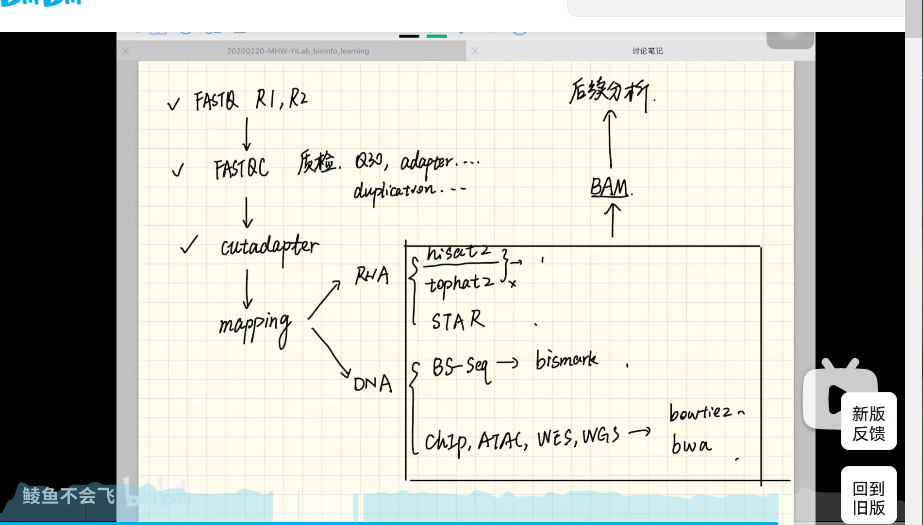 20200220-MHW-YiLab_bioinfo_learning
讨论笔记
✓ FASTQ R1, R2
✓ FASTQC 质检. Q30, adapter....
duplication....
✓ cutadapter
mapping
RNA
hisat2
tophat2 x
STAR
DNA
BS-Seq → bismark
ChIp, ATAC, WES, WGS →
bowtie2
bwa
BAM.
后续分析.
鲮鱼不会飞
bilibili
新版
反馈
回到
旧版